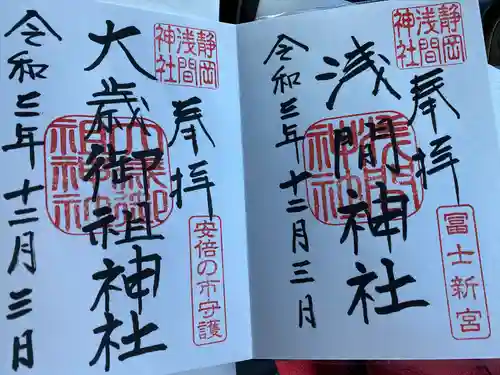 奉拝
静岡
浅間
神社
冨士新宮
浅間神社
令和三年十二月三日
奉拝
静岡
浅間
神社
安倍の市守護
大歳御祖神社
令和三年十二月三日